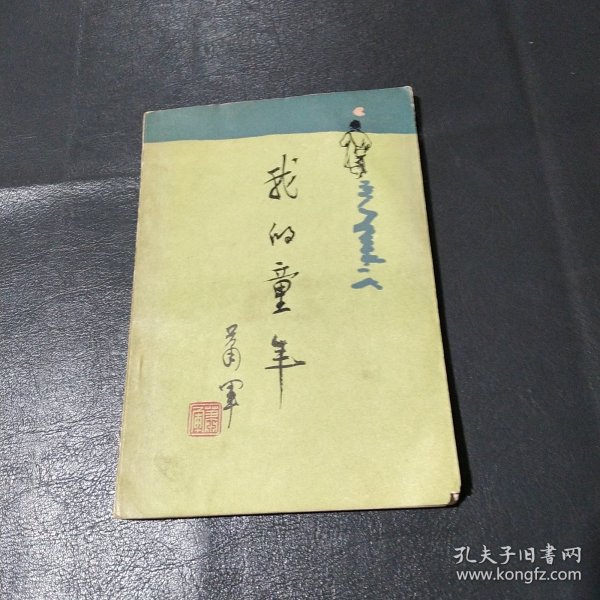 我的童年
萧军
孔夫子旧書网
www.kongfz.com